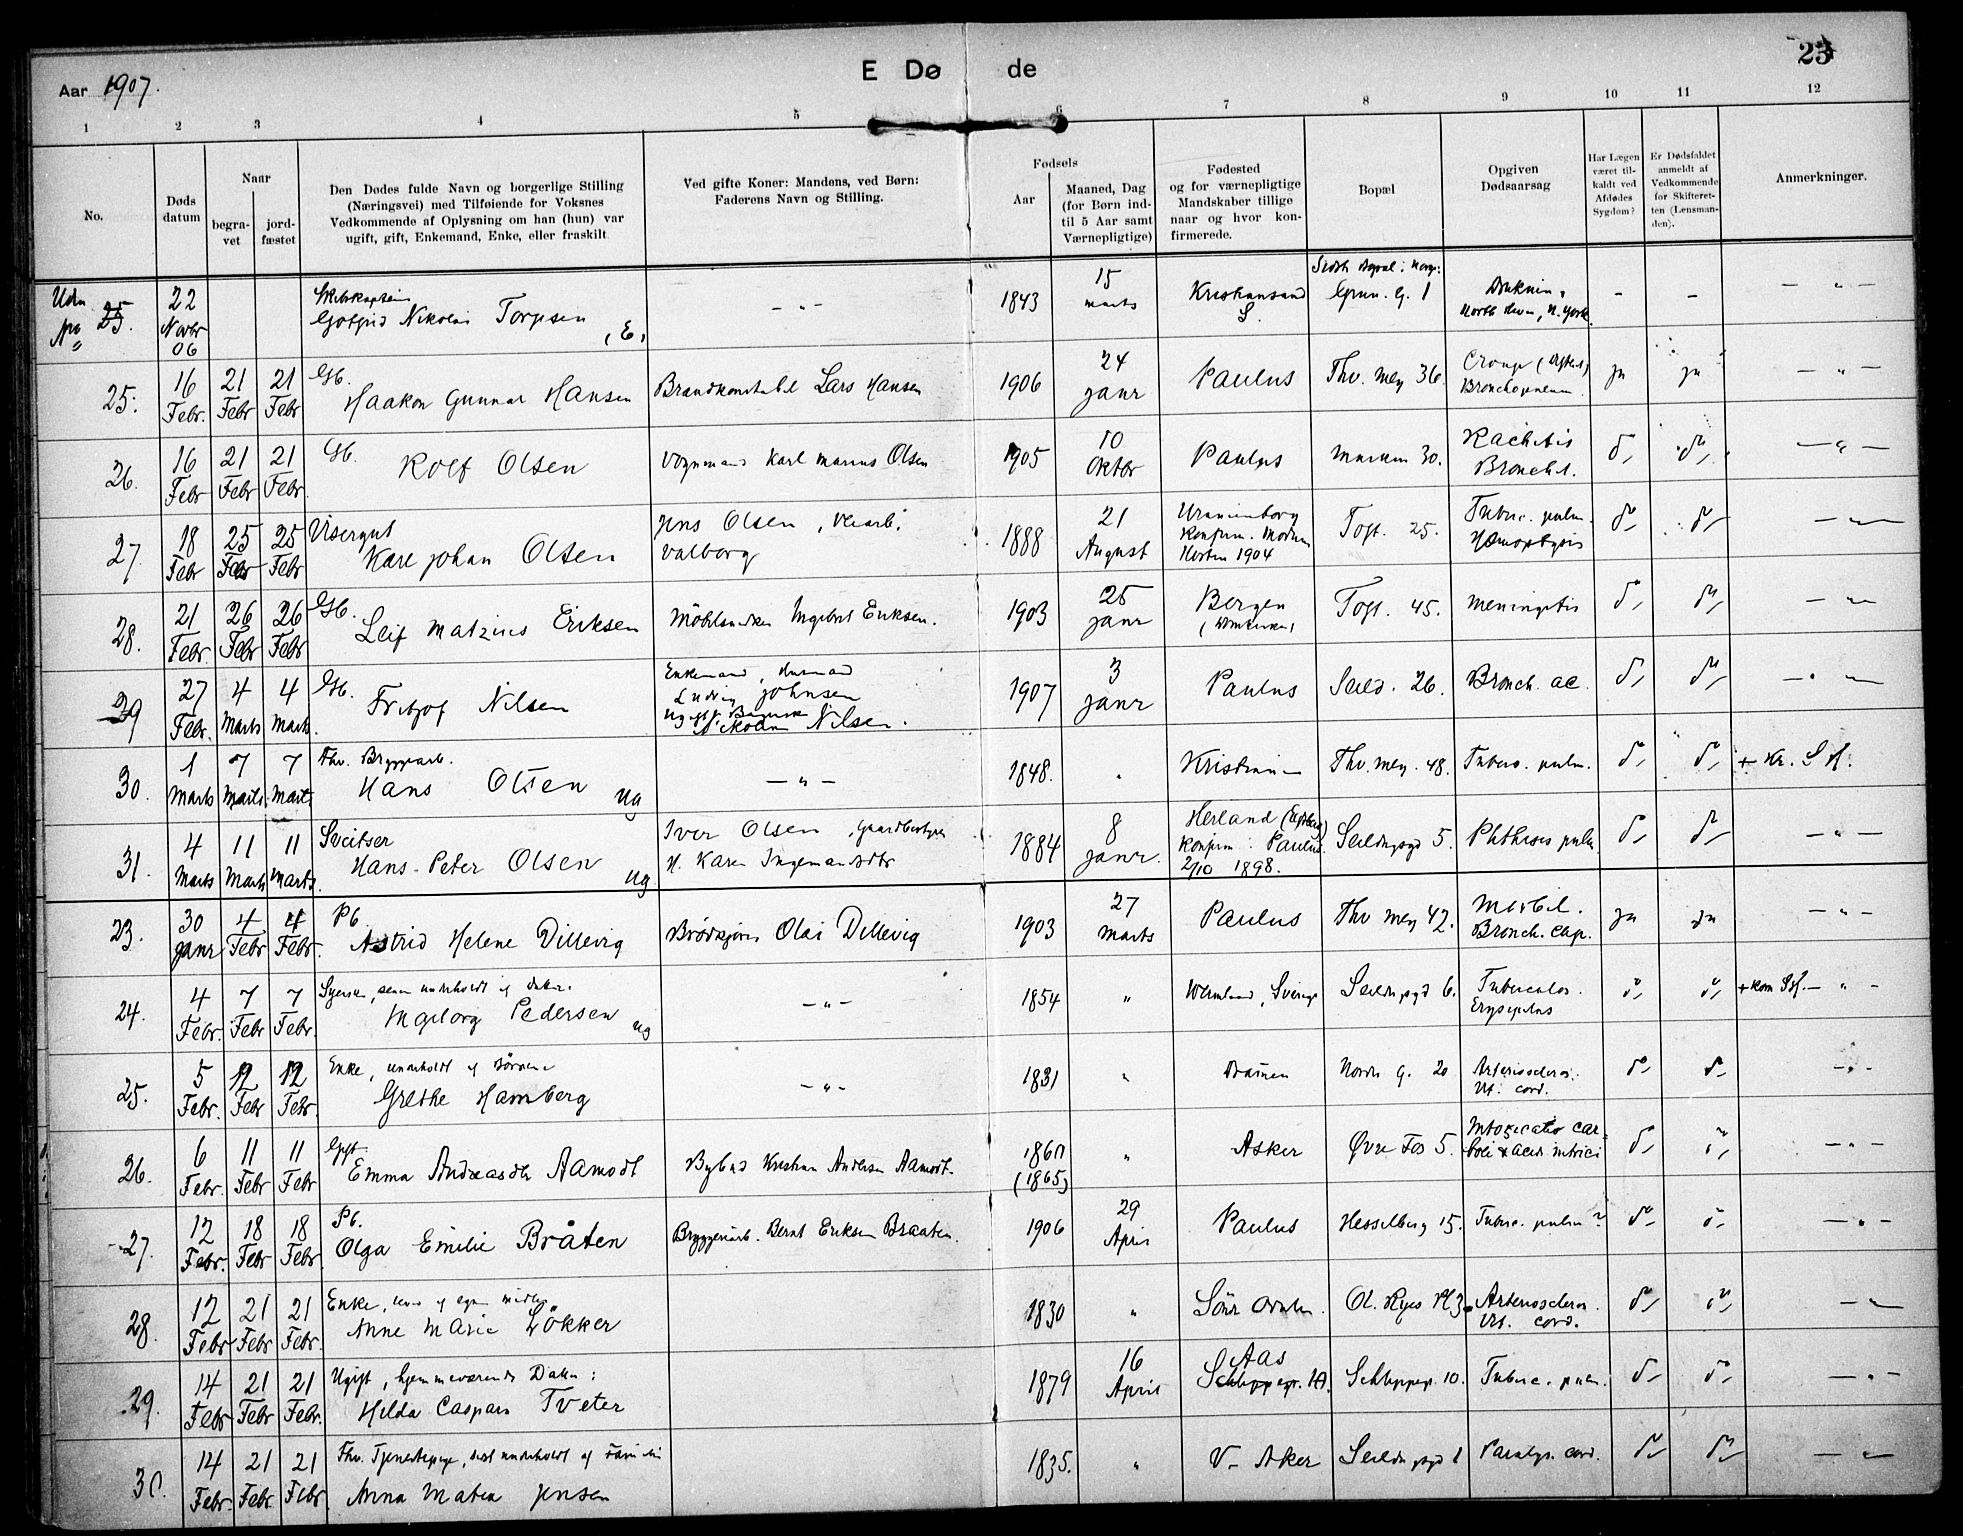 Aar 1907.
E Dø de
23
1 2 3 4 5 6 7 8 9 10 11 12
No.
Døds datum
Naar
begra-vet
jord-fæstet
Den Dødes fulde Navn og borgerlige Stilling
(Næringsvei) med Tilføiende for Voksnes
Vedkommende af Oplysning om han (hun) var
ugift, gift, Enkemand, Enke, eller fraskilt
Ved gifte Koner: Mandens, ved Børn:
Faderens Navn og Stilling.
Fødsels
Aar
Maaned, Dag
(for Børn ind-
til 5 Aar samt
Værnepligtige)
Fødested
og for værnepligtige
Mandskaber tillige
naar og hvor kon-
firmerede.
Bopæl
Opgiven
Dødsaarsag
Har Lægen
været til-
kaldt ved
Afdødes
Sygdom?
Er Dødsfaldet
anmeldt af
Vedkommende
for Skifteret-
ten (Lensman-
den).
Anmerkninger.
Uden No 25. 22 Novbr 06 Skibskaptein Gotfrid Nikolai Torgersen (E) — " — 1843 15 marts Kristiansand S. Grün. G. 1 North River, N. York. - - — " —
25. 16 Febr. 21 Febr 21 Febr Gb. Haakon Gunnar Hansen Brandkonstabel Lars Hansen 1906 24 janr Paulus Thv. mey 36. Croup Bronchopneum. ja ja — " —
26. 16 Febr 21 Febr 21 Febr. Gb. Rolf Olsen Vognmand Karl Marius Olsen 1905 10 Oktbr Paulus 30. Rachitis Bronchit. do do — " —
27. 18 Febr 25 Febr 25 Febr Visergut Karl Johan Olsen Jens Olsen, Valborg 1888 21 August Uranienborg Konfirm. Modum Høsten 1904 Toft. 25. Tuberc. pulm. Hæmoptysis do do — " —
28. 21 Febr. 26 Febr 26 Febr Gb. Leif Matzius Eriksen Möbelsnedker Ingebret Eriksen. 1903 25 janr Bergen Toft. 45. Meningitis do do — " —
29 27 Febr. 4 Marts 4 Marts. Gb. Fritjof Nilsen Enkemand, Ludvig Johnsen Ugift Nikoline Nilsen. 1907 3 janr Paulus Seild. 26. Bronch. ac. do do — " —
30. 1 Marts 7 Marts 7 Marts Fhv. Bryggearb. Hans Olsen ug — " — 1848. " Kristiania Thv. mey. 48. Tuberc. pulm. do do + Kr. S sf.
31. 4 Marts 11 Marts 11 Marts. Sveitser Hans Peter Olsen ug Iver Olsen, Gaardbestyrer H. Karen Ingemansdtr 1884 8 janr. Herland (Eidsberg) Konfirm. i Paulus 2/10 1898. Seildugsgd 5. Phthisis pulm do do — " —
23. 30 janr 4 Febr 4 Febr. Pb. Astrid Helene Dillevig Brødkjører Olai Dillevig 1903 27 Marts Paulus Thv mey 42. Morbil. Bronch. cap. ja ja — " —
24. 4 Febr. 7 Febr. 7 Febr. Syerske, Ingeborg Pedersen ug — " — 1854 " Wermland, Sverige Seildugsgd 6. Tuberculos. Erysipelas do do + Kom Sf. — " —
25. 5 Febr. 12 Febr 12 Febr. Enke, underholdt af Børnene Grethe Hamberg — " — 1831 " Drammen Nordre G. 20 Arterioscleros. Vit. cord. do do — " —
26. 6 Febr. 11 Febr 11 Febr Gift Emma Andreasdtr Aamodt Bybud Kristian Andersen Aamodt. 1860 (1865) " Asker Øvre Fos 5. Intoxicatio carboli & acid. nitrici do do — " —
27. 12 Febr. 18 Febr 18 Febr. Pb. Olga Emilie Bråten Bryggeriarb. Bernt Eriksen Braaten. 1906 29 April Paulus Hesselberg 15. Tuberc. pulm? do do — " —
28. 12 Febr 21 Febr 21 Febr. Enke, lever af egne midler Anne Marie Løkker 1830 " Søndre Ol. Ryes Pl 3. Arterioscleros. Vit. cord. do do — " —
29. 14 Febr 21 Febr 21 Febr. Ugift, hjemmeværende Datter: Hilda Caspara Tveter 1879 16 April Aas Schleppegr. 10. Schleppegr. 10. Tuberc. pulm. do do — " —
30. 14 Febr. 21 Febr. 21 Febr Fhv. Tjenestepige, underholdt af Familie Anna Matea Jensen 1835. " V. Aker Seildugsgd 1 Paralys. cord. do do — " —